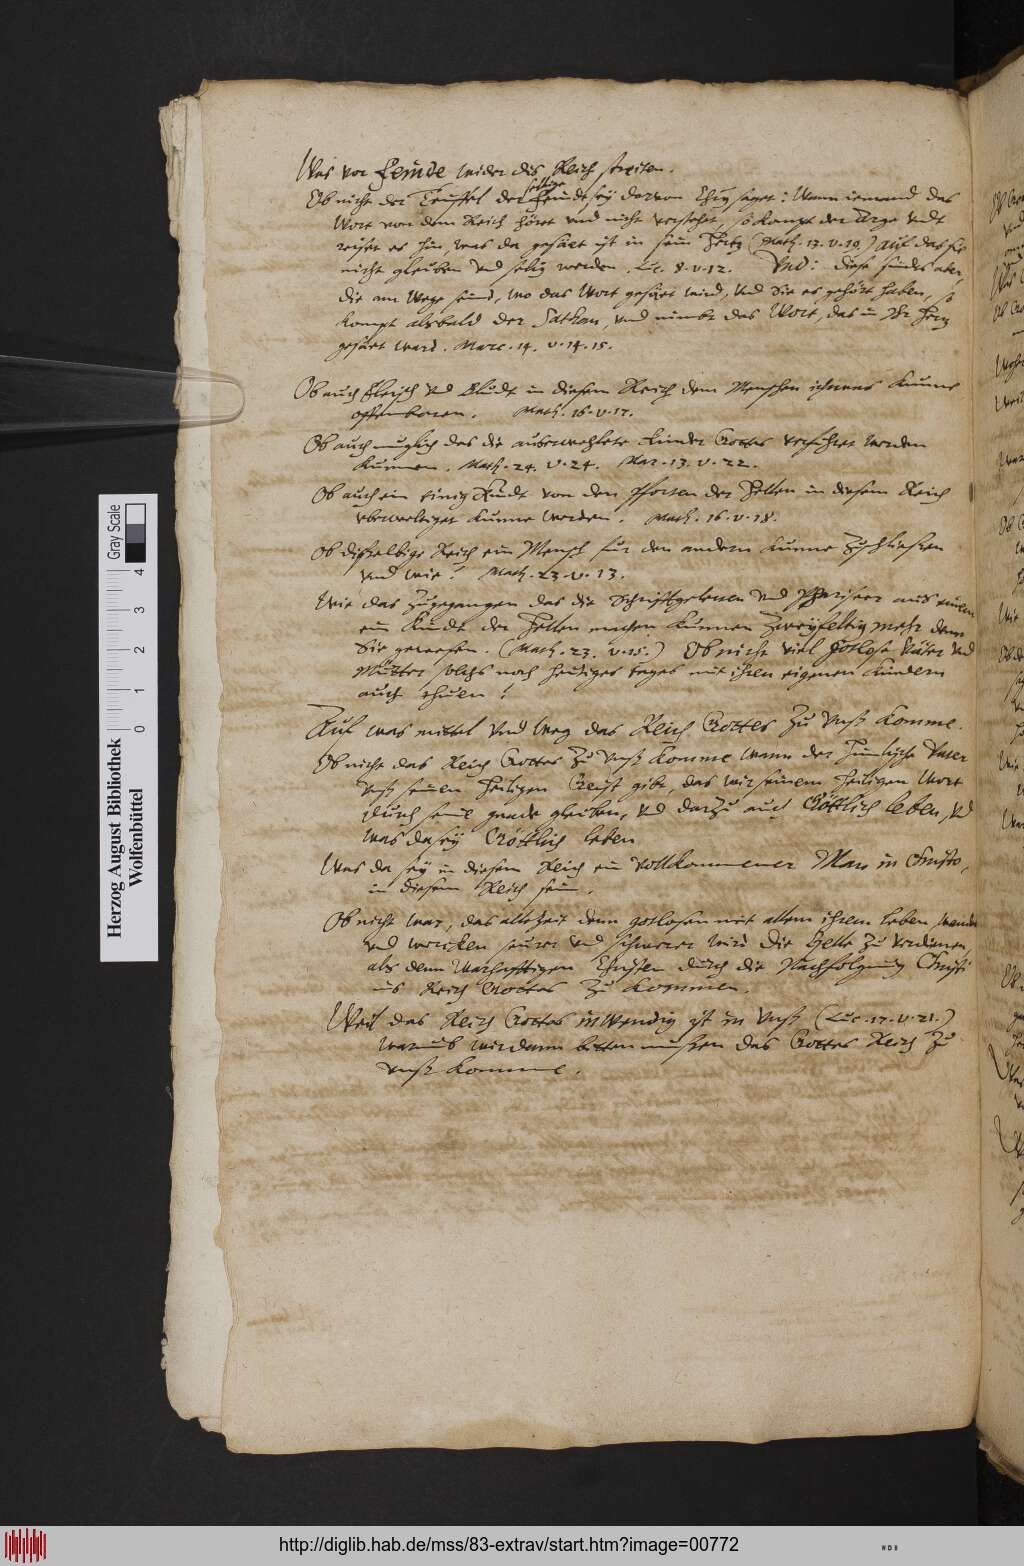 Was vor Feinde wider dis Reich streiten.
Ob nicht der Teuffel derselbige Feindt sey davon Chrs saget: Wann iemand das
Wort von dem Reich höret und nicht verstehet, so kompt der Arge undt
reiset es hin was da gesäet ist in sein Hertz (Math. 13. v. 19.) auf das sie
nicht gleuben und selig werden. Luc. 8. v. 12. Und: diese sinds aber,
die am Wege seind, wo das Wort gesäet wird, und sie es gehört haben, so
kompt alsbald der Sathan, und nimbt das Wort, das in Ihr Hertz
gesäet ward. Marc. 14. v. 14. 15.
Ob auch Fleisch und Bludt in diesem Reich dem Menschen ichtwas kunne
offenbaren. Math. 16. v. 17.
Ob auch muglich das die auserwehlete Kinder Gottes verführet werden
kunnen. Math. 24. v. 24. Mar. 13. v. 22.
Ob auch ein einig Kindt von den Pforten der Hellen in diesem Reich
uberweltiget kunne werden. Math. 16. v. 18.
Ob dißselbige Reich ein Mensch fur den andern kunne zuschliessen
und wie? Math. 23. v. 13.
Wie das zugegangen das die Schrifftgelerten und Phariseer aus einem
ein Kindt der Hellen machen kunnen zweyfeltig mehr denn
Sie gewesen. (Math. 23. v. 15.) Ob nicht viel gotlose Väter und
Mütter solchs noch heutiges tages mit ihren eigenen Kindern
auch thuen?
Auf was mittel und weg das Reich Gottes zu unß komme.
Ob nicht das Reich Gottes zu unß komme wann der himlische Vater
unß seinen heiligen Geist gibt, das wir seinem heiligen Wort
durch seine gnade gleuben, und darzu auch Göttlich leben, und
was da sey Göttlich leben
Was da sey in diesem Reich ein vollkommener Man in Christo,
in diesem Reich sein.
Ob nicht war, das allezeit denn gotlosen mit allem ihrem leben
und wircken saurer und schwerer wird die Helle zu verdienen,
als denn warhafftigen Christen durch die Nachfolgung Christi
ins Reich Gottes zu kommen.
Weil das Reich Gottes inwendig ist in unß (Luc. 17. v. 21.)
warumb wir dann bitten mussen das Gottes Reich zu
unß komme.
Herzog August Bibliothek
Wolfenbüttel
0 1 2 3 4
Gray Scale
http://diglib.hab.de/mss/83-extrav/start.htm?image=00772